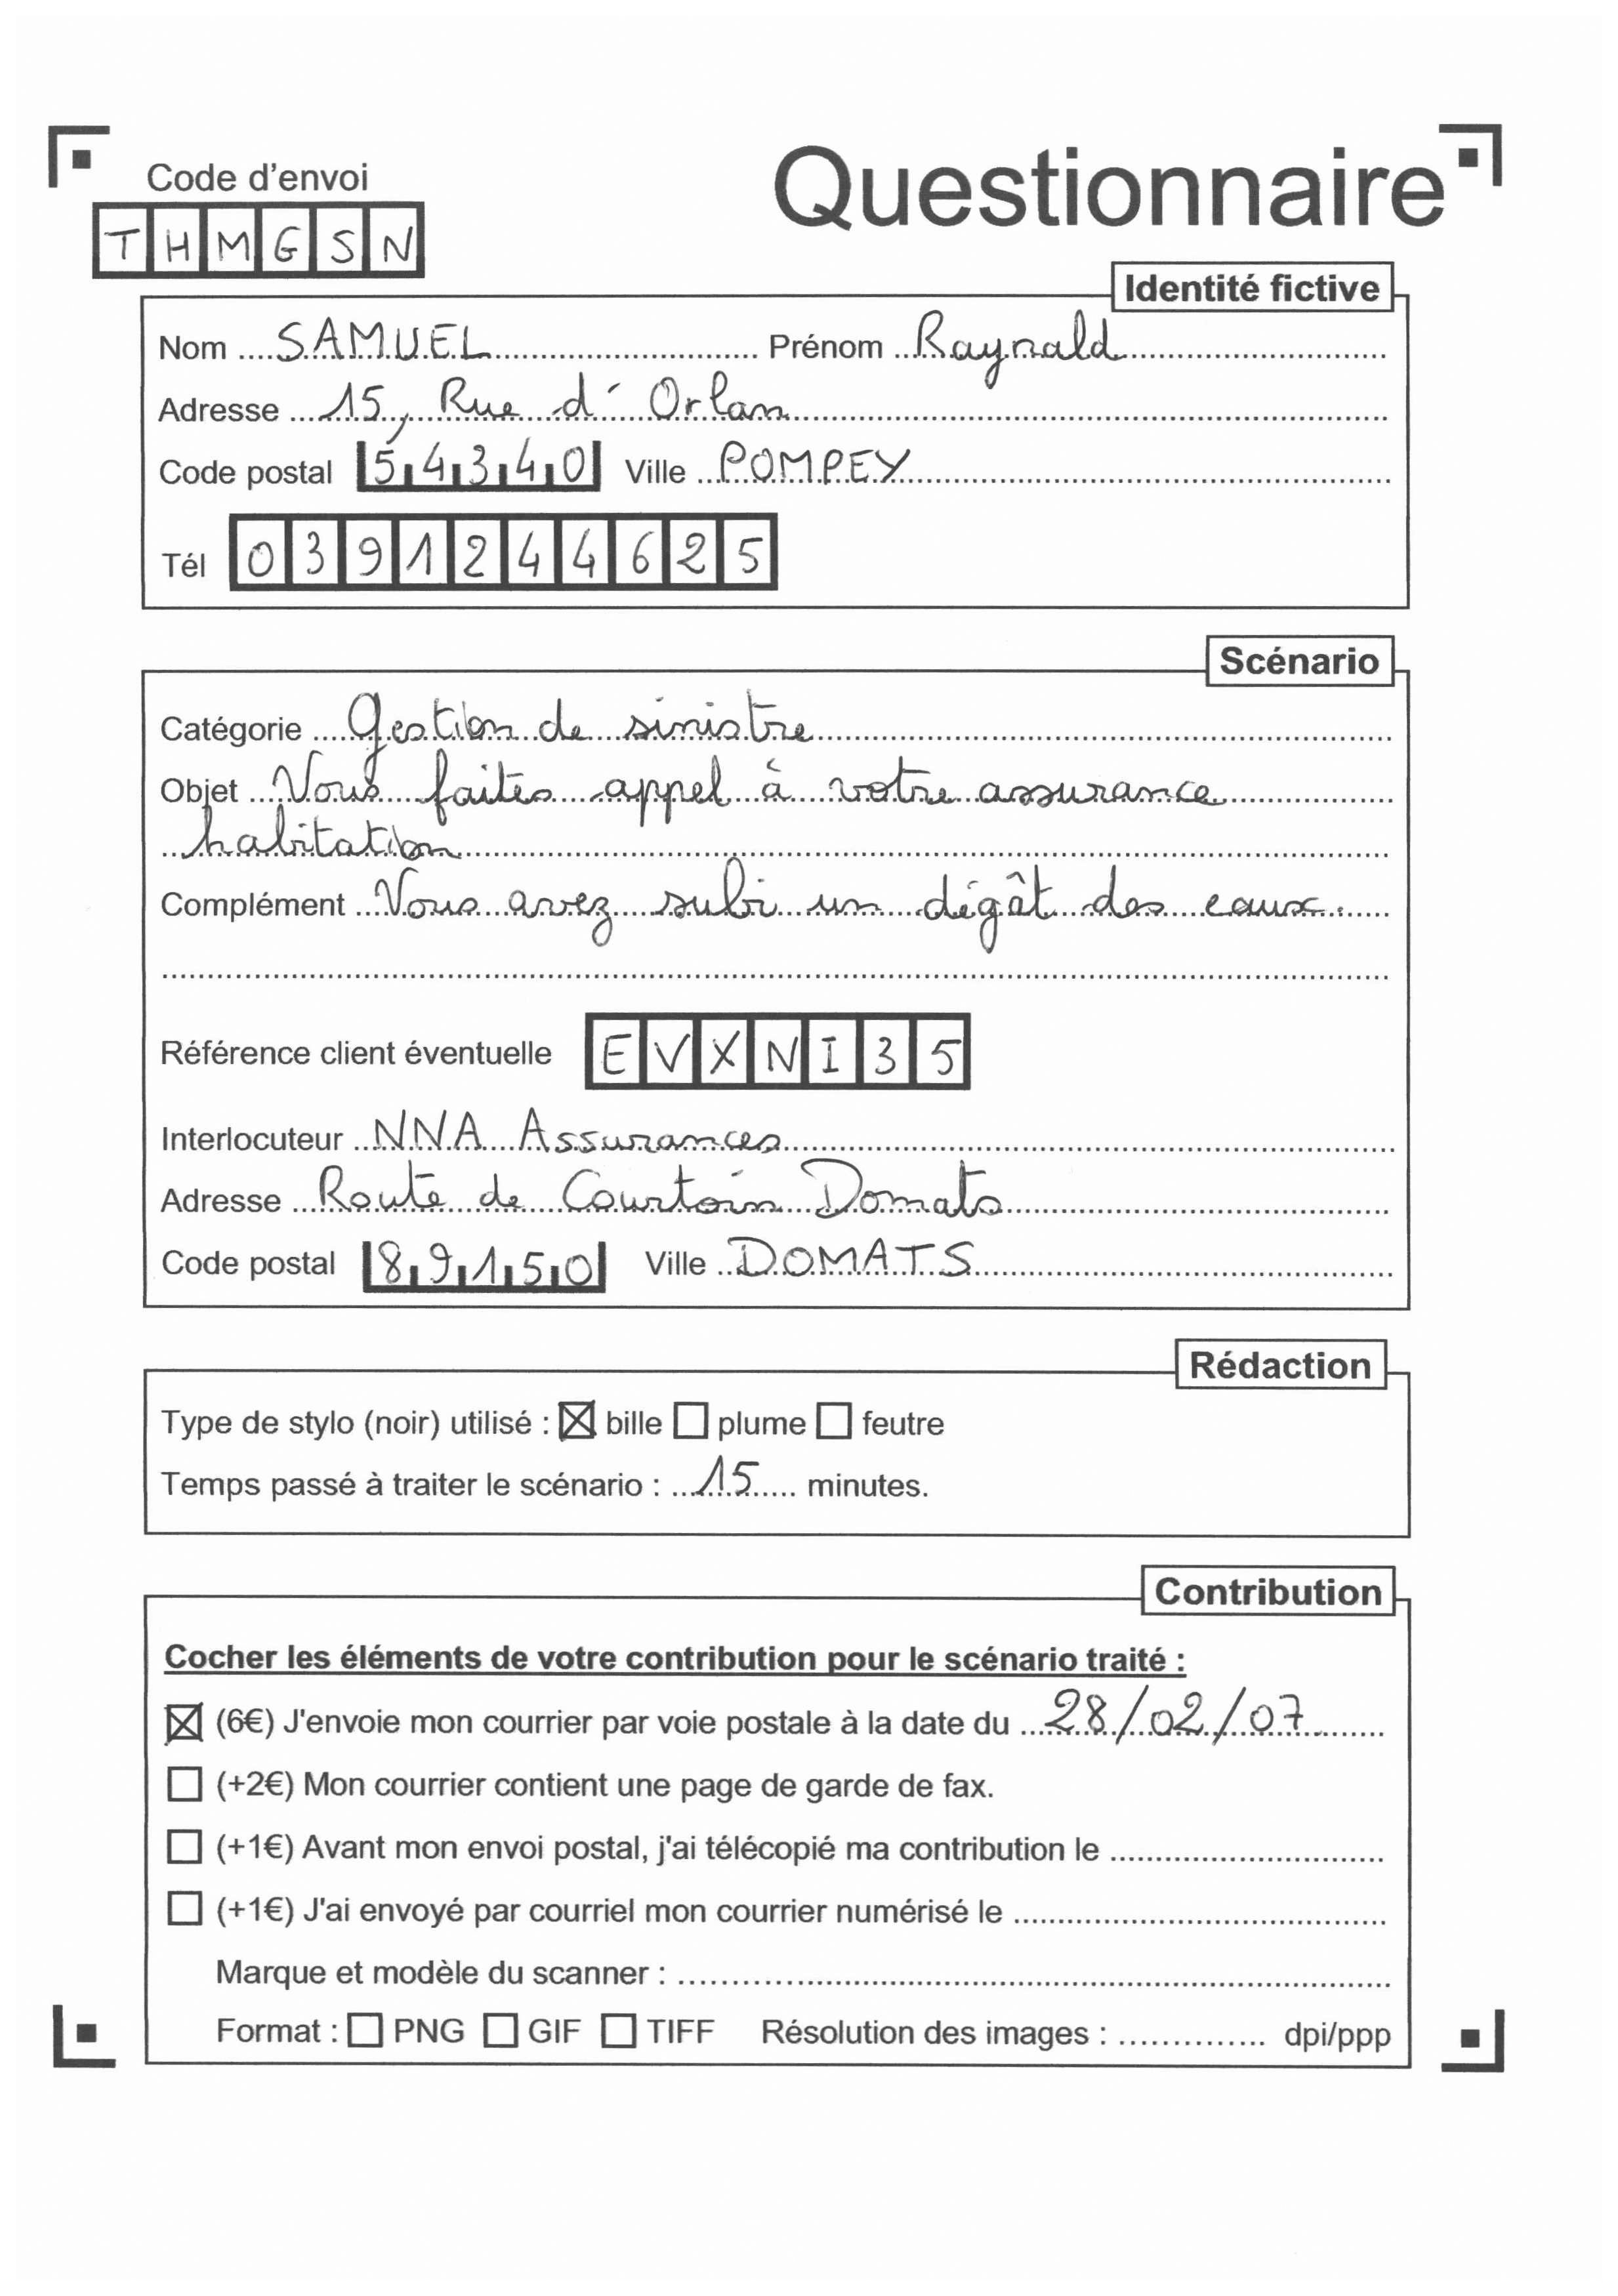 Code d'envoi
Questionnaire
THMGSN
Identité fictive
Nom SAMUEL Prénom Raynald
Adresse 15, Rue d'Orlan
Code postal 54340 Ville POMPEY
Tél 0391244625
Scénario
Catégorie Gestion de sinistre
Objet Vous faites appel à votre assurance
habitation
Complément Vous avez subi un dégât des eaux.
Référence client éventuelle EVXNI35
Interlocuteur NNA Assurances
Adresse Route de Courtoin Domats
Code postal 89150 Ville DOMATS
Rédaction
Type de stylo (noir) utilisé : ☒ bille ☐ plume ☐ feutre
Temps passé à traiter le scénario : 15 minutes.
Contribution
Cocher les éléments de votre contribution pour le scénario traité :
☒ (6€) J'envoie mon courrier par voie postale à la date du 28/02/07
☐ (+2€) Mon courrier contient une page de garde de fax.
☐ (+1€) Avant mon envoi postal, j'ai télécopié ma contribution le
☐ (+1€) J'ai envoyé par courriel mon courrier numérisé le
Marque et modèle du scanner :
Format : ☐ PNG ☐ GIF ☐ TIFF Résolution des images : dpi/ppp